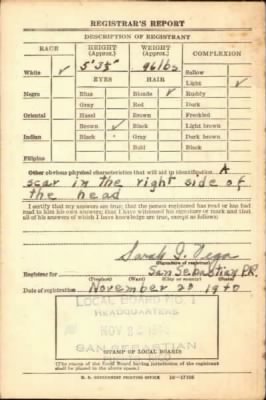 REGISTRAR'S REPORT
DESCRIPTION OF REGISTRANT
RACE HEIGHT (Approx.) WEIGHT (Approx.) COMPLEXION
White ✓ 5'35" 96 lbs Sallow
EYES HAIR Light ✓
Negro Blue Blonde ✓ Ruddy
Gray Red Dark
Oriental Hazel Brown Freckled
Brown ✓ Black Light brown
Indian Black Gray Dark brown
Bald Black
Filipino
Other obvious physical characteristics that will aid in identification A
scar in the right side of
the head
I certify that my answers are true; that the person registered has read or has had
read to him his own answers; that I have witnessed his signature or mark and that all
of his answers of which I have knowledge are true, except as follows:
Sarah I. Vega
(Signature of registrar)
Registrar for San Sebastian P.R.
(Precinct) (Ward) (City or county) (State)
Date of registration November 20 1940
LOCAL BOARD NO. 1
HEADQUARTERS
NOV
SAN SEBASTIAN
STAMP OF LOCAL BOARD
(The stamp of the Local Board having jurisdiction of the registrant
shall be placed in the above space.)
U. S. GOVERNMENT PRINTING OFFICE 16—17105